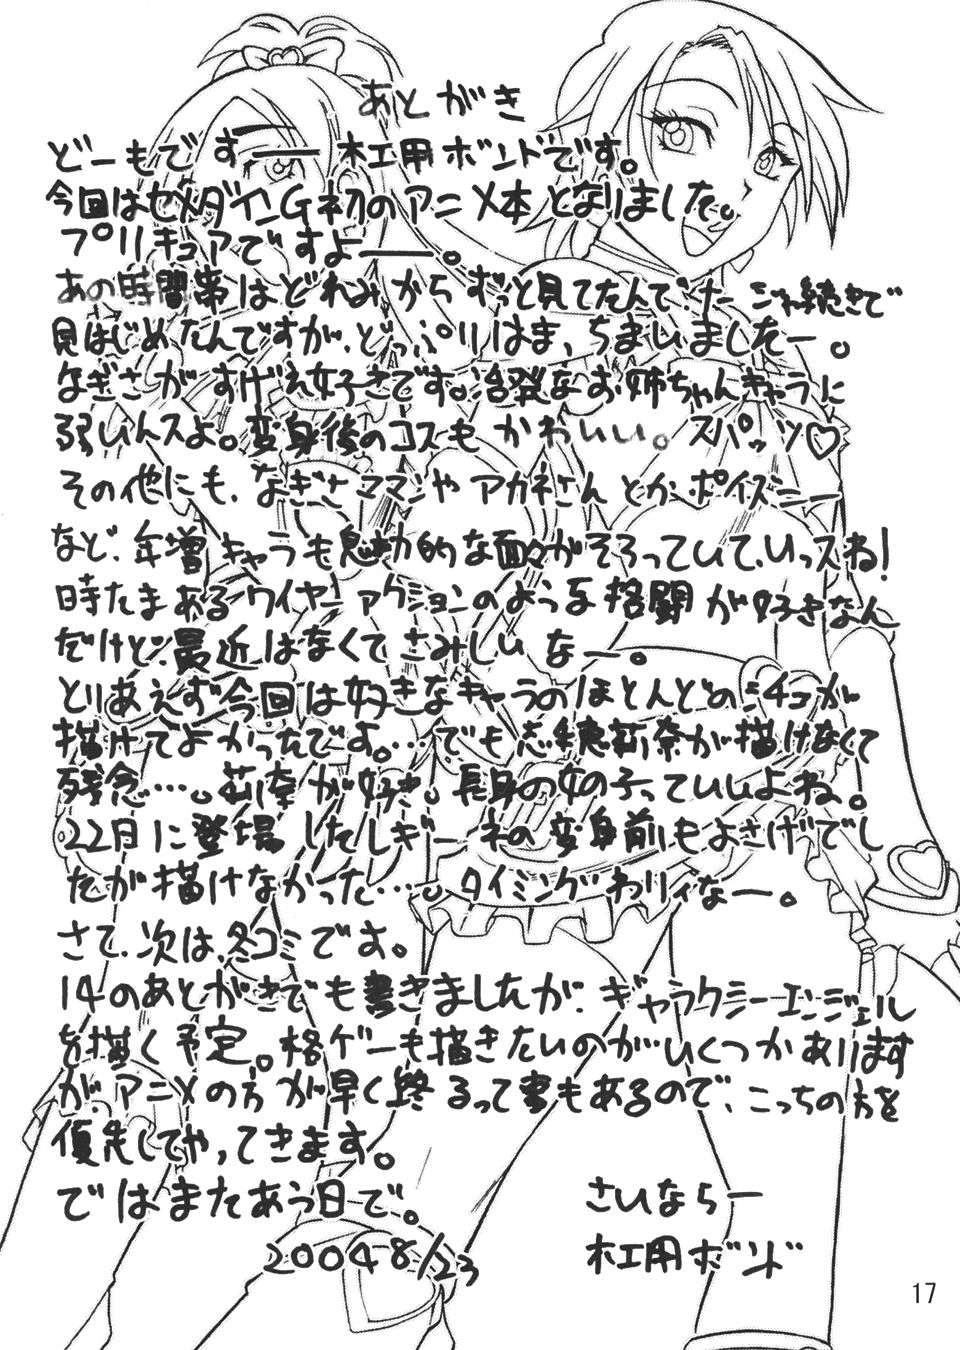 あとがき
どーもですー 木工用ボンドです。
今回はセメダインG初のアニメ本となりました。
プリキュアですよー。
あの時間帯はどれみからずっと見てたんで、続きで
見はじめたんですが、どっぷりはま、ちまいましたー。
なぎさがすげえ好きです。活発なお姉ちゃんキャラに
弱いんスよ。変身後のコスもかわいい。スパッツ♡
その他にも、なぎさママンやアカネさんとかポイズニー
など、年増キャラも魅力的な面々がそろっていて、いっスね!
時たまあるワイヤーアクションのような格闘が好きなん
だけど、最近はなくてさみしいなー。
とりあえず今回は好きなキャラのほとんどのシチュが
描けてよかったです。…でも志穂莉奈が描けなくて
残念…。莉奈が好き。長身の女の子っていいよね。
22日に登場したレギーネの変身前もよさげでし
たが描けなかった…。タイミングわりィなー。
さて、次は、冬コミです。
14のあとがきでも書きましたが、ギャラクシーエンジェル
を描く予定。格ゲーも描きたいのが…いくつかあります
が、アニメの方が早く終るって事もあるので、こっちの方を
優先してやってきます。
ではまたあう日で。
さいならー
2004 8/23
木工用ボンド
17